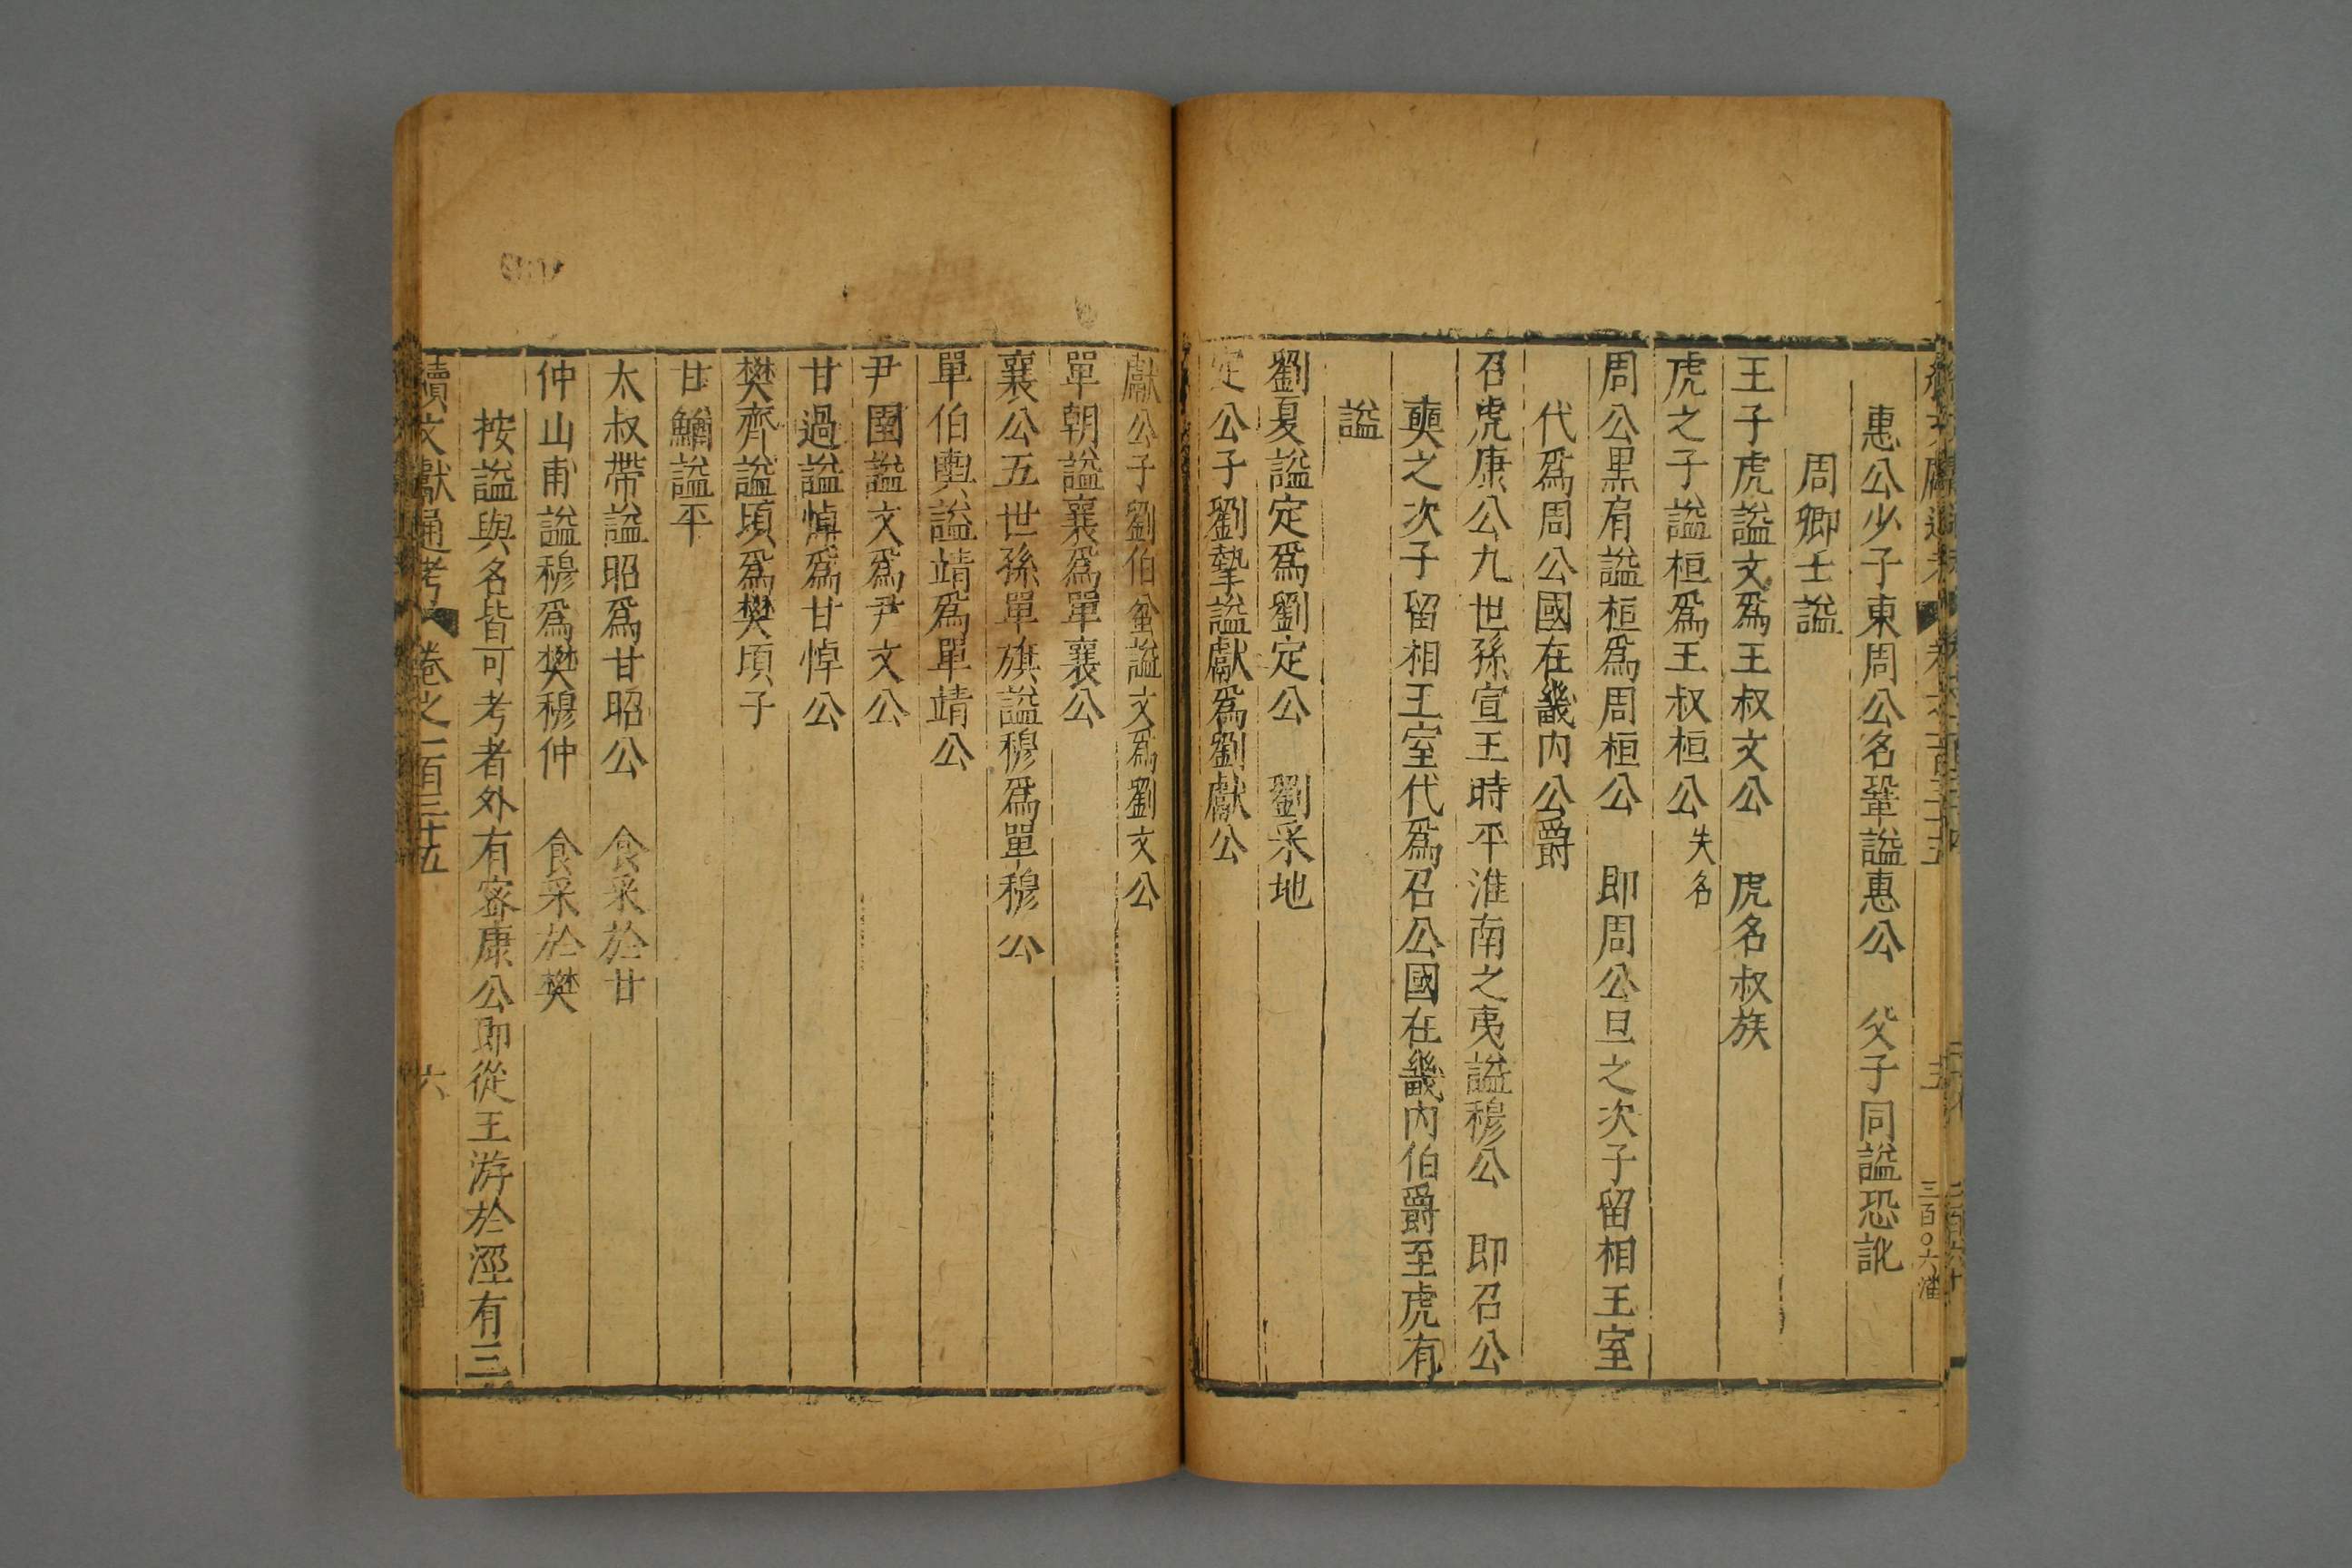 惠公少子東周公名鞏謚惠公　父子同謚恐訛
周卿士謚
王子虎謚文爲王叔文公　虎名叔族
虎之子謚桓爲王叔桓公失名
周公黑肩謚桓爲周桓公　即周公旦之次子留相王室
代爲周公國在畿內公爵
召虎康公九世孫宣王時平淮南之夷謚穆公　即召公
奭之次子留相王室代爲召公國在畿內伯爵至虎有
謚
劉夏謚定爲劉定公　劉采地
定公子劉摯謚獻爲劉獻公
獻公子劉伯蚠謚文爲劉文公
單朝謚襄爲單襄公
襄公五世孫單旗謚穆爲單穆公
單伯輿謚靖爲單靖公
尹圉謚文爲尹文公
甘過謚悼爲甘悼公
樊齊謚頃爲樊頃子
甘鰌謚平
太叔帶謚昭爲甘昭公　食采於甘
仲山甫謚穆爲樊穆仲　食采於樊
按謚與名皆可考者外有密康公即從王游於涇有三
續文獻通考　卷之一百三十五　六